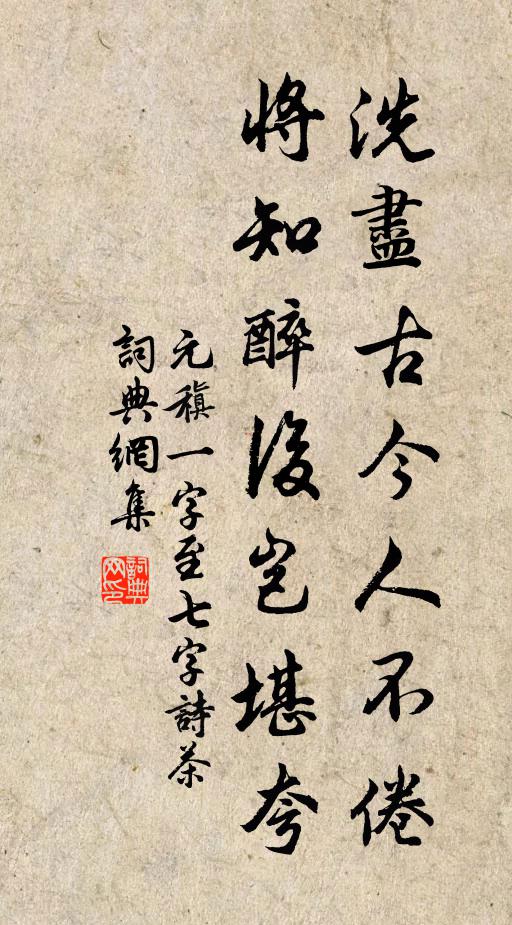 洗盡古今人不倦
將知醉後豈堪夸
元稹一字至七字詩茶
詞典網集
詞典網印